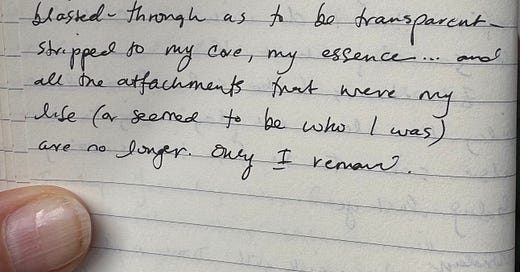 blasted-through as to be transparent-
stripped to my core, my essence... and
all the attachments that were my
life (or seemed to be who I was)
are no longer. Only I remain.